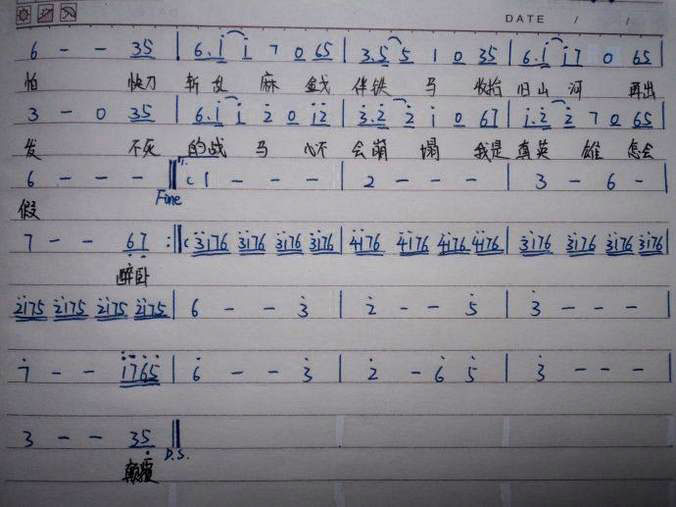 DATE / /
6 - - 35 | 6.i i 7 0 65 | 3.5 5 1 0 35 | 6.i i7 0 65
怕 快刀 斩乱麻 金戈 伴铁马 收拾旧山河 再出
3 - 0 35 | 6.i i 2 0 i2 | 3.2 2 i 0 67 | i.2 2 7 0 65
发 不死的战马 心不会崩塌 我是真英雄 怎会
6 - - - ‖ 1 - - - | 2 - - - | 3 - 6 -
Fine
假
7 - - 67 :‖ 3176 3176 3176 3176 | 4176 4176 4176 4176 | 3176 3176 3176 3176
醉卧
2175 2175 2175 2175 | 6 - - 3 | 2 - - 5 | 3 - - -
7 - - 1765 | 6 - - 3 | 2 - 6 5 | 3 - - -
3 - - 35 ‖
D.S.
颠覆